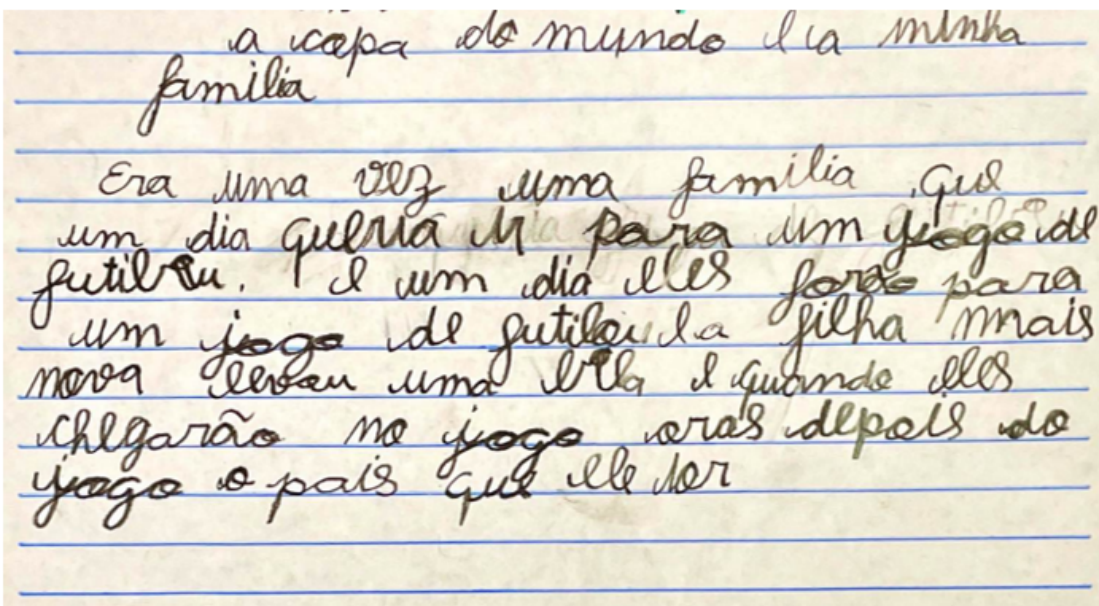 a copa do mundo e a minha
familia
Era uma vez uma familia que
um dia queria ir para um jogo de
futilbu. e um dia eles forão para
um jogo de futilbu e a filha mais
nova levou uma bola e quando eles
chegarão no jogo oras depois do
jogo o pais que ele tor